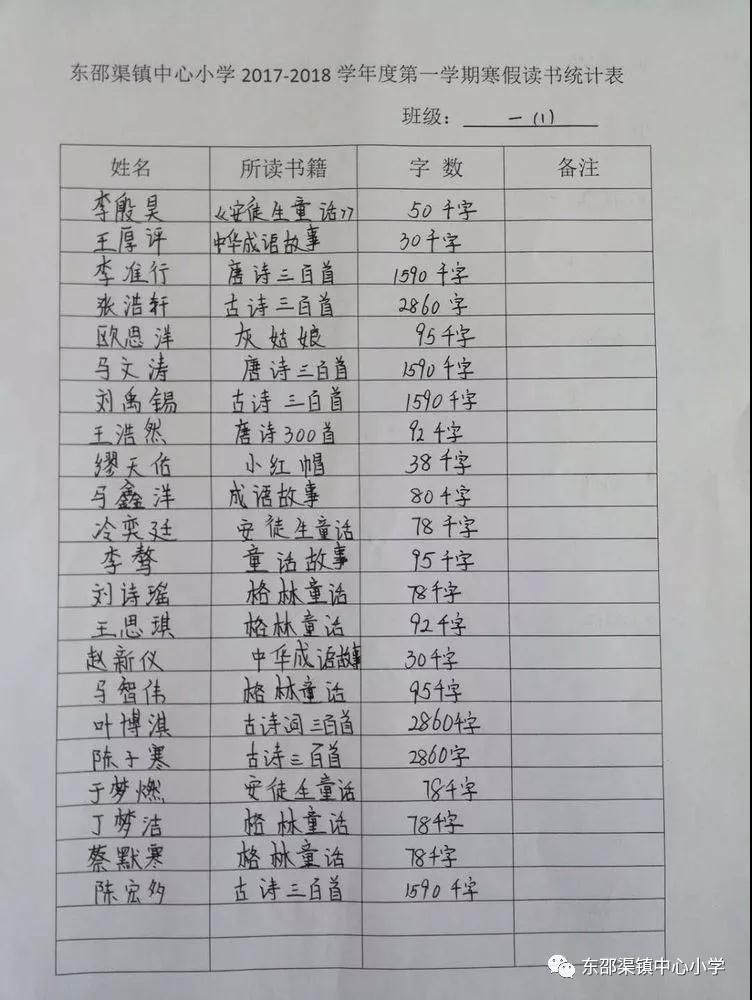 东邵渠镇中心小学 2017-2018 学年度第一学期寒假读书统计表
班级: 一(1)
姓名 所读书籍 字 数 备注
李殷昊 《安徒生童话》 50千字
王厚评 中华成语故事 30千字
李准行 唐诗三百首 1590千字
张浩轩 古诗三百首 2860字
欧思洋 灰姑娘 95千字
马文涛 唐诗三百首 1590千字
刘禹锡 古诗三百首 1590千字
王浩然 唐诗300首 92千字
缪天佑 小红帽 38千字
马鑫洋 成语故事 80千字
冷奕廷 安徒生童话 78千字
李骜 童话故事 95千字
刘诗瑶 格林童话 78千字
王思琪 格林童话 92千字
赵新仪 中华成语故事 30千字
马智伟 格林童话 95千字
叶博淇 古诗词三百首 2860千字
陈子寒 古诗三百首 2860字
于梦燃 安徒生童话 78千字
丁梦洁 格林童话 78千字
蔡默寒 格林童话 78千字
陈宏 古诗三百首 1590千字
东邵渠镇中心小学